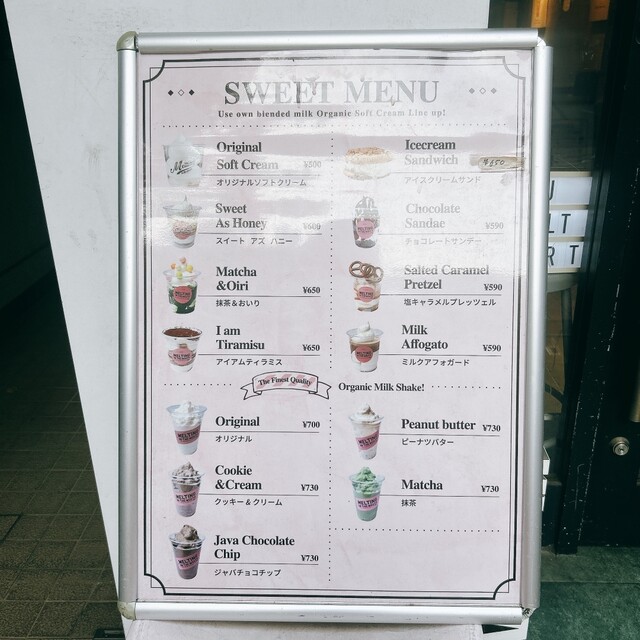 SWEET MENU
Use own blended milk Organic Soft Cream Line up!
Original
Soft Cream ¥500
オリジナルソフトクリーム
Sweet
As Honey ¥600
スイート アズ ハニー
Matcha
&Oiri ¥650
抹茶&おいり
I am
Tiramisu ¥650
アイアムティラミス
Icecream
Sandwich ¥650
アイスクリームサンド
Chocolate
Sandae ¥590
チョコレートサンデー
Salted Caramel
Pretzel ¥590
塩キャラメルプレッツェル
Milk
Affogato ¥590
ミルクアフォガード
The Finest Quality Organic Milk Shake!
Original ¥700
オリジナル
Cookie
&Cream ¥730
クッキー&クリーム
Java Chocolate
Chip ¥730
ジャバチョコチップ
Peanut butter ¥730
ピーナツバター
Matcha ¥730
抹茶